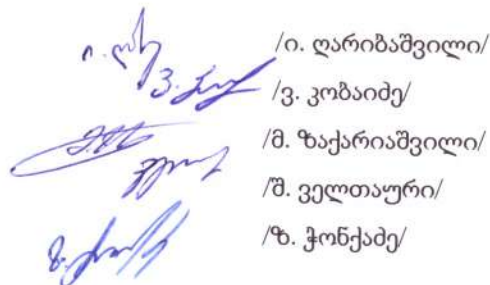 /ი. ღარიბაშვილი/
/ვ. კობაიძე/
/მ. ზაქარიაშვილი/
/შ. ველთაური/
/ზ. ჭონქაძე/